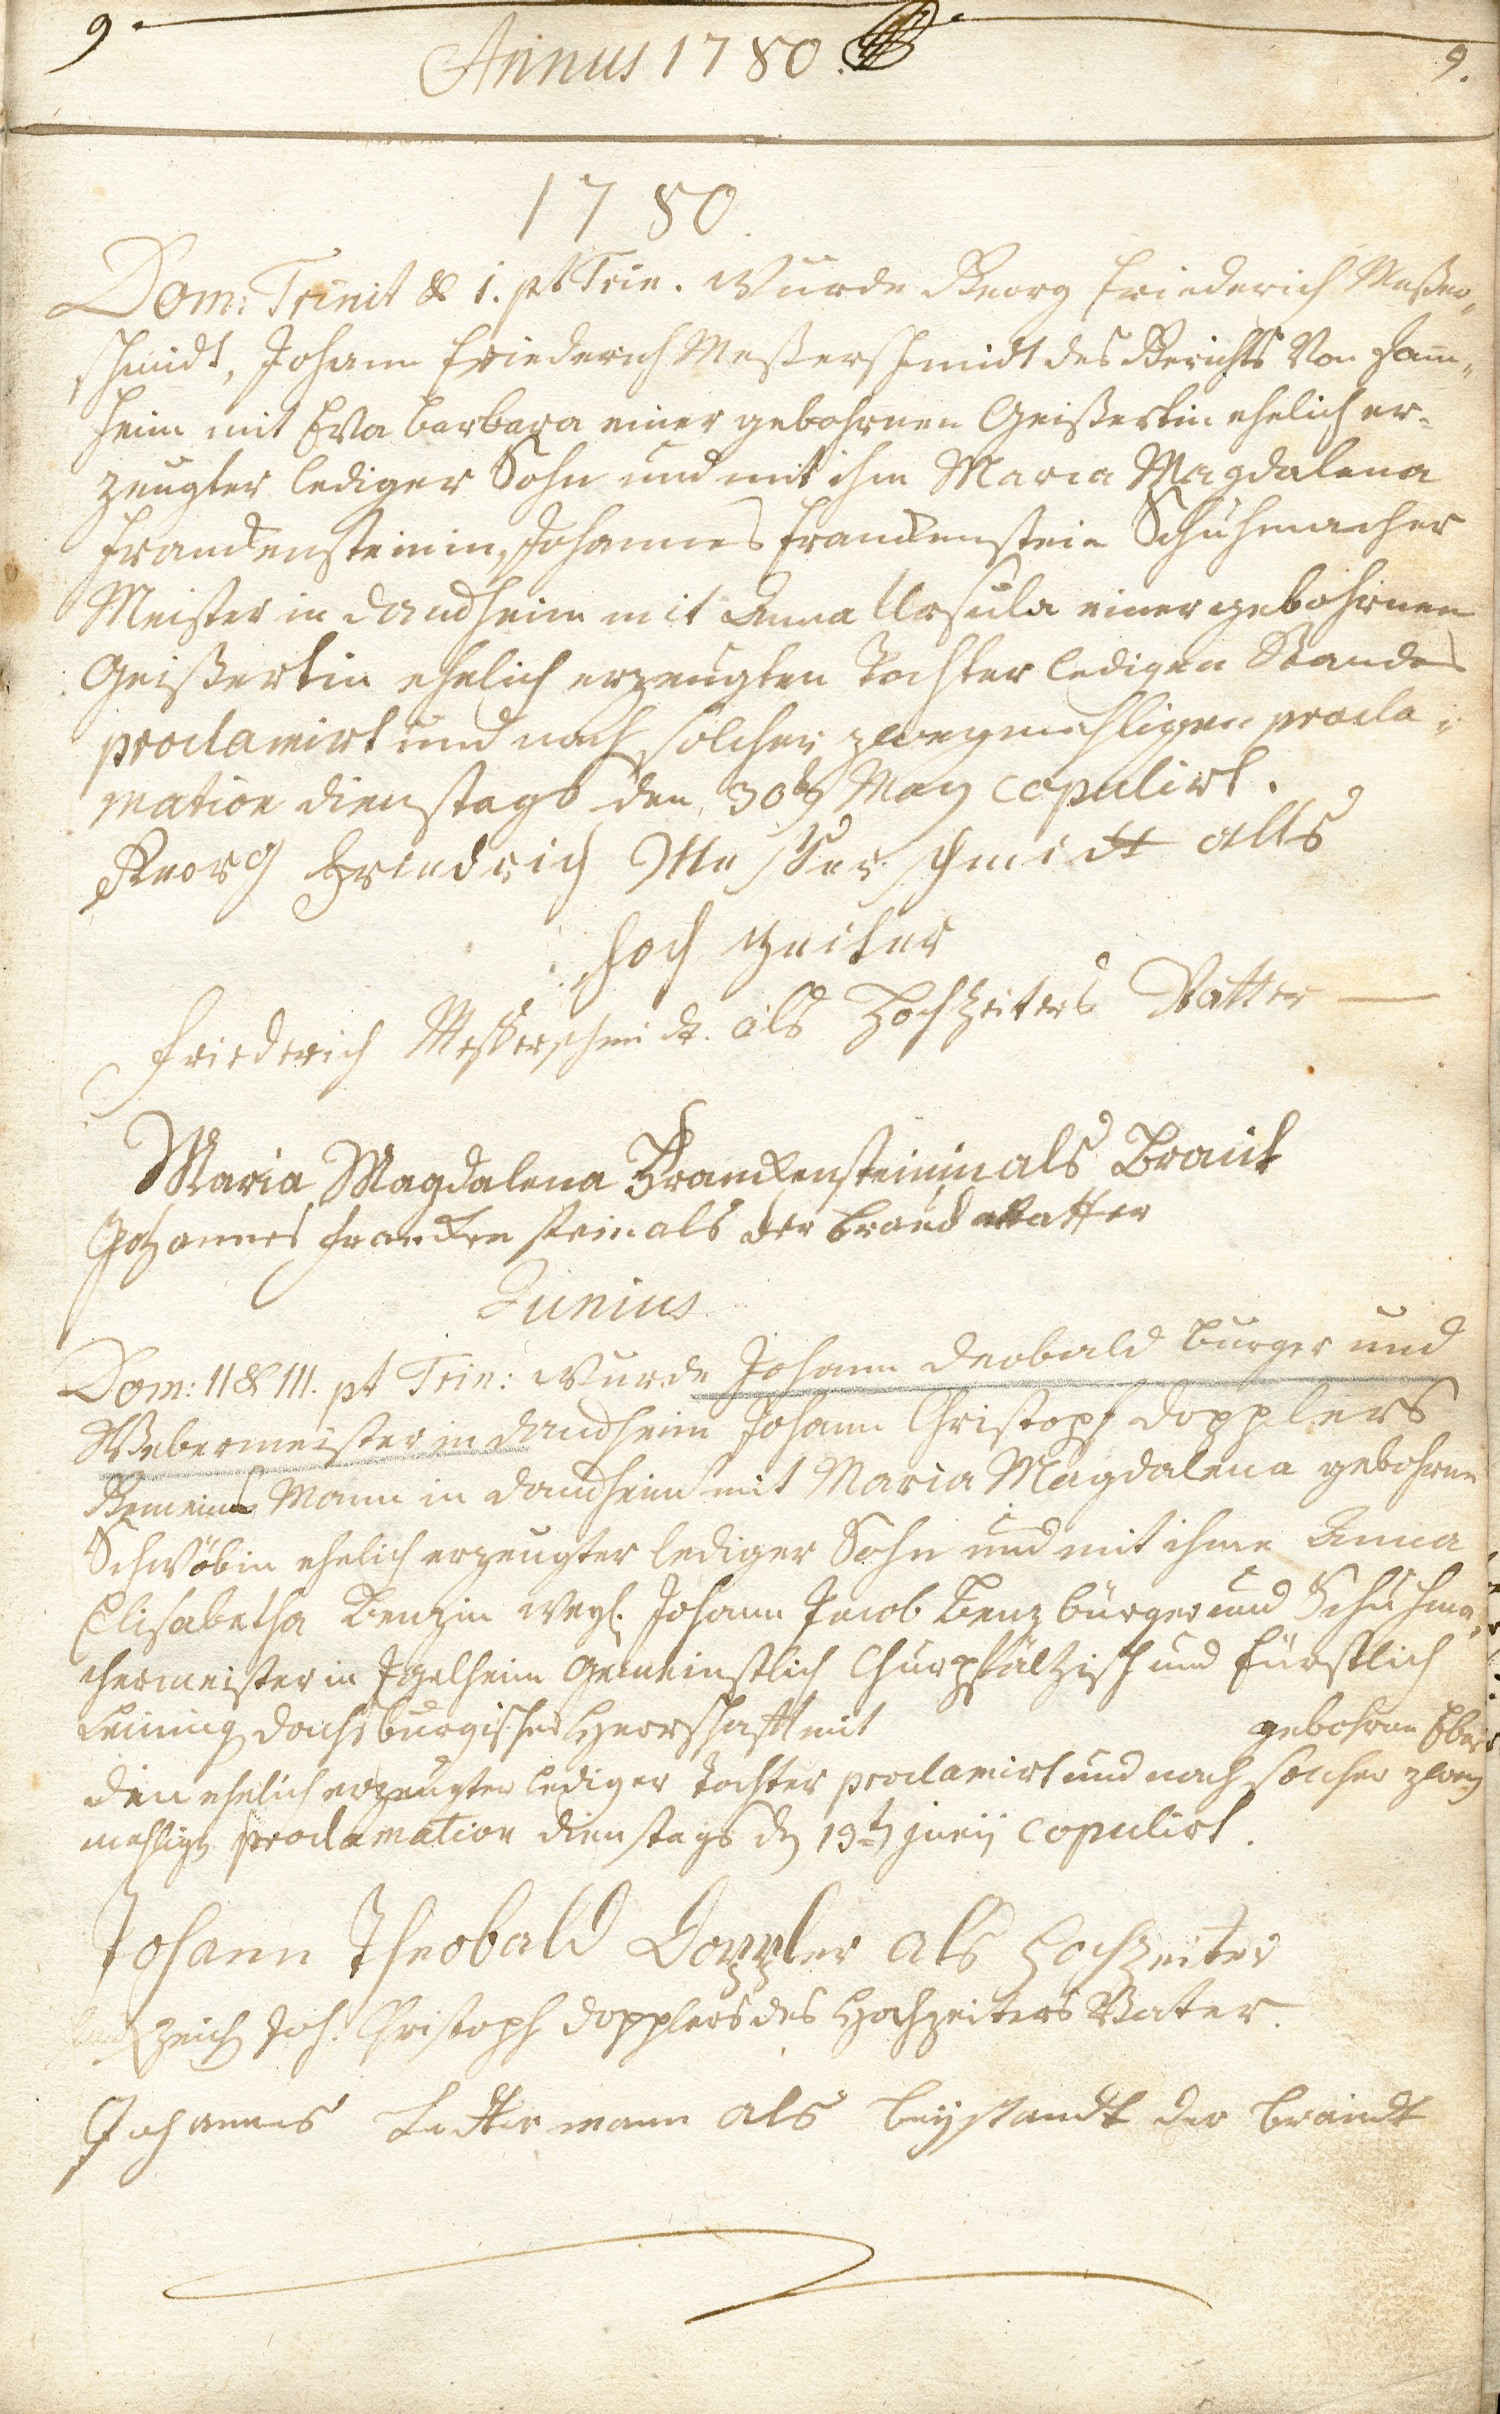 9. Annus 1780. 9.
1780.
Dom: Trinit & 1. pt Trin. wurde Georg Friederich Meßer„
schmidt, Johann Friederich Meßerschmidt des Gerichts von
heim mit Eva Barbara einer gebohrnen Geißertin ehelich er-
zeugter lediger Sohn und mit ihm Maria Magdalena
Franckensteinin, Johannes Franckenstein Schuhmacher
Meister in Dandheim mit Anna Ursula einer gebohrnen
Geißertin ehelich erzeugten Tochter ledigen Standes
proclamirt und nach solcher zweymahligen procla„
mation dienstags den 30ten May copulirt.
Georg Friedrich Messerschmidt alls
hoch zeiter
Friederich Messerschmidt. als Hochzeiters Vatter
Maria Magdalena Franckensteinin als Braut
Johannes Francken stein als der braud Vatter
Junius
Dom: II & III. pt Trin: wurde Johann Deobald burger und
Webermeister in Dandheim Johann Christoph Dopplers
Gemeins Mann in Dandheim mit Maria Magdalena gebohrne
Schwöbin ehelich erzeugter lediger Sohn und mit ihme Anna
Elisabetha Benzin weyl. Johann Jacob Benz bürger und Schuhma„
chermeister in Igelheim Gemeinstlich Churpfältzisch und Fürstlich
Leining Dachsburgischer Herrschafft mit gebohrne
din ehelich erzeugter lediger Tochter proclamirt und nach solcher zwey
mahligen proclamation dienstags den 13ten junij copulirt.
Johann Theobald Doppler als Hochzeiter
zeich Joh. Christoph Dopplers des Hochzeiters Vater.
Johannes Ledterman als beystandt der braudt